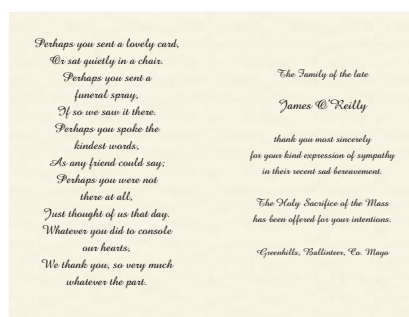 Perhaps you sent a lovely card,
Or sat quietly in a chair.
Perhaps you sent a
funeral spray,
If so we saw it there.
Perhaps you spoke the
kindest words,
As any friend could say;
Perhaps you were not
there at all,
Just thought of us that day.
Whatever you did to console
our hearts,
We thank you, so very much
whatever the part.
The Family of the late
James O'Reilly
thank you most sincerely
for your kind expression of sympathy
in their recent sad bereavement.
The Holy Sacrifice of the Mass
has been offered for your intentions.
Greenhills, Ballinteer, Co. Mayo